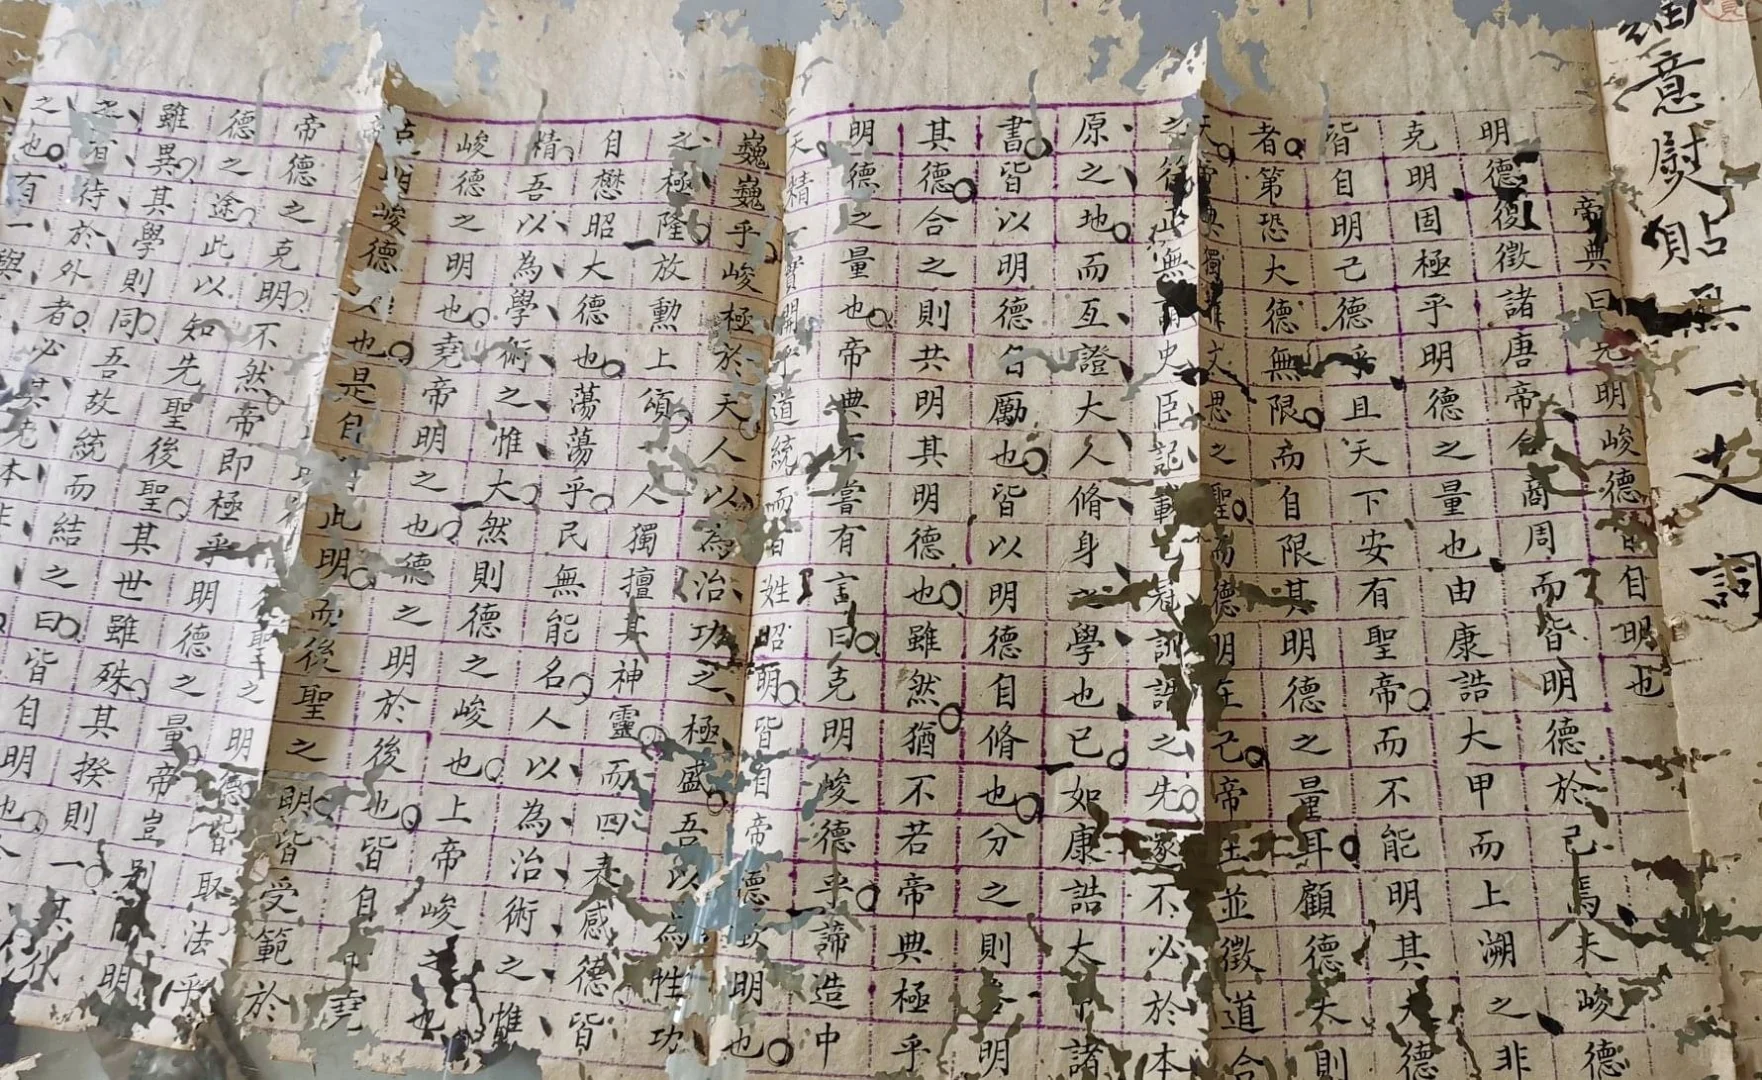 細意熨貼無一支詞
帝典曰克明峻德皆自明也
明德復徵諸唐帝合商周而皆明德於己焉夫峻德
克明固極乎明德之量也由康誥大甲而上溯之非
皆自明己德乎且天下安有聖帝而不能明其大德
者第恐大德無限而自限其明德之量耳顧德大則
天帝典獨文思之聖而德明在己帝王並徵道合
之無史臣記載冠訓誥之先遂不必於本
原之地而互證大人脩身之學也已如康誥大甲諸
書皆以明德自勵也皆以明德自脩也分之則各明
其德合之則共明其明德也雖然猶不若帝典極乎
明德之量也帝典不嘗有言曰克明峻德乎諦造中
天精一實開乎道統而百姓昭明皆自帝德攸明也
巍巍乎峻極於天人以為治功之極盛吾以為性功
之極隆放勳上頌人獨擅其神靈而四表感德皆
自懋昭大德也蕩蕩乎民無能名人以為治術之惟
精吾以為學術之惟大然則德之峻也上帝峻之也
峻德之明也堯帝明之也德之明於後也皆自堯
克明峻德人也是自此明而後聖之明皆受範於
聖之明德皆取法乎
帝德之克明不然帝即極乎明德之量帝豈別開明
德之途此以知先聖後聖其世雖殊其揆則一其代
雖異其學則同吾故統而結之曰皆自明也
之者待於外者必其先本非
之也有一與